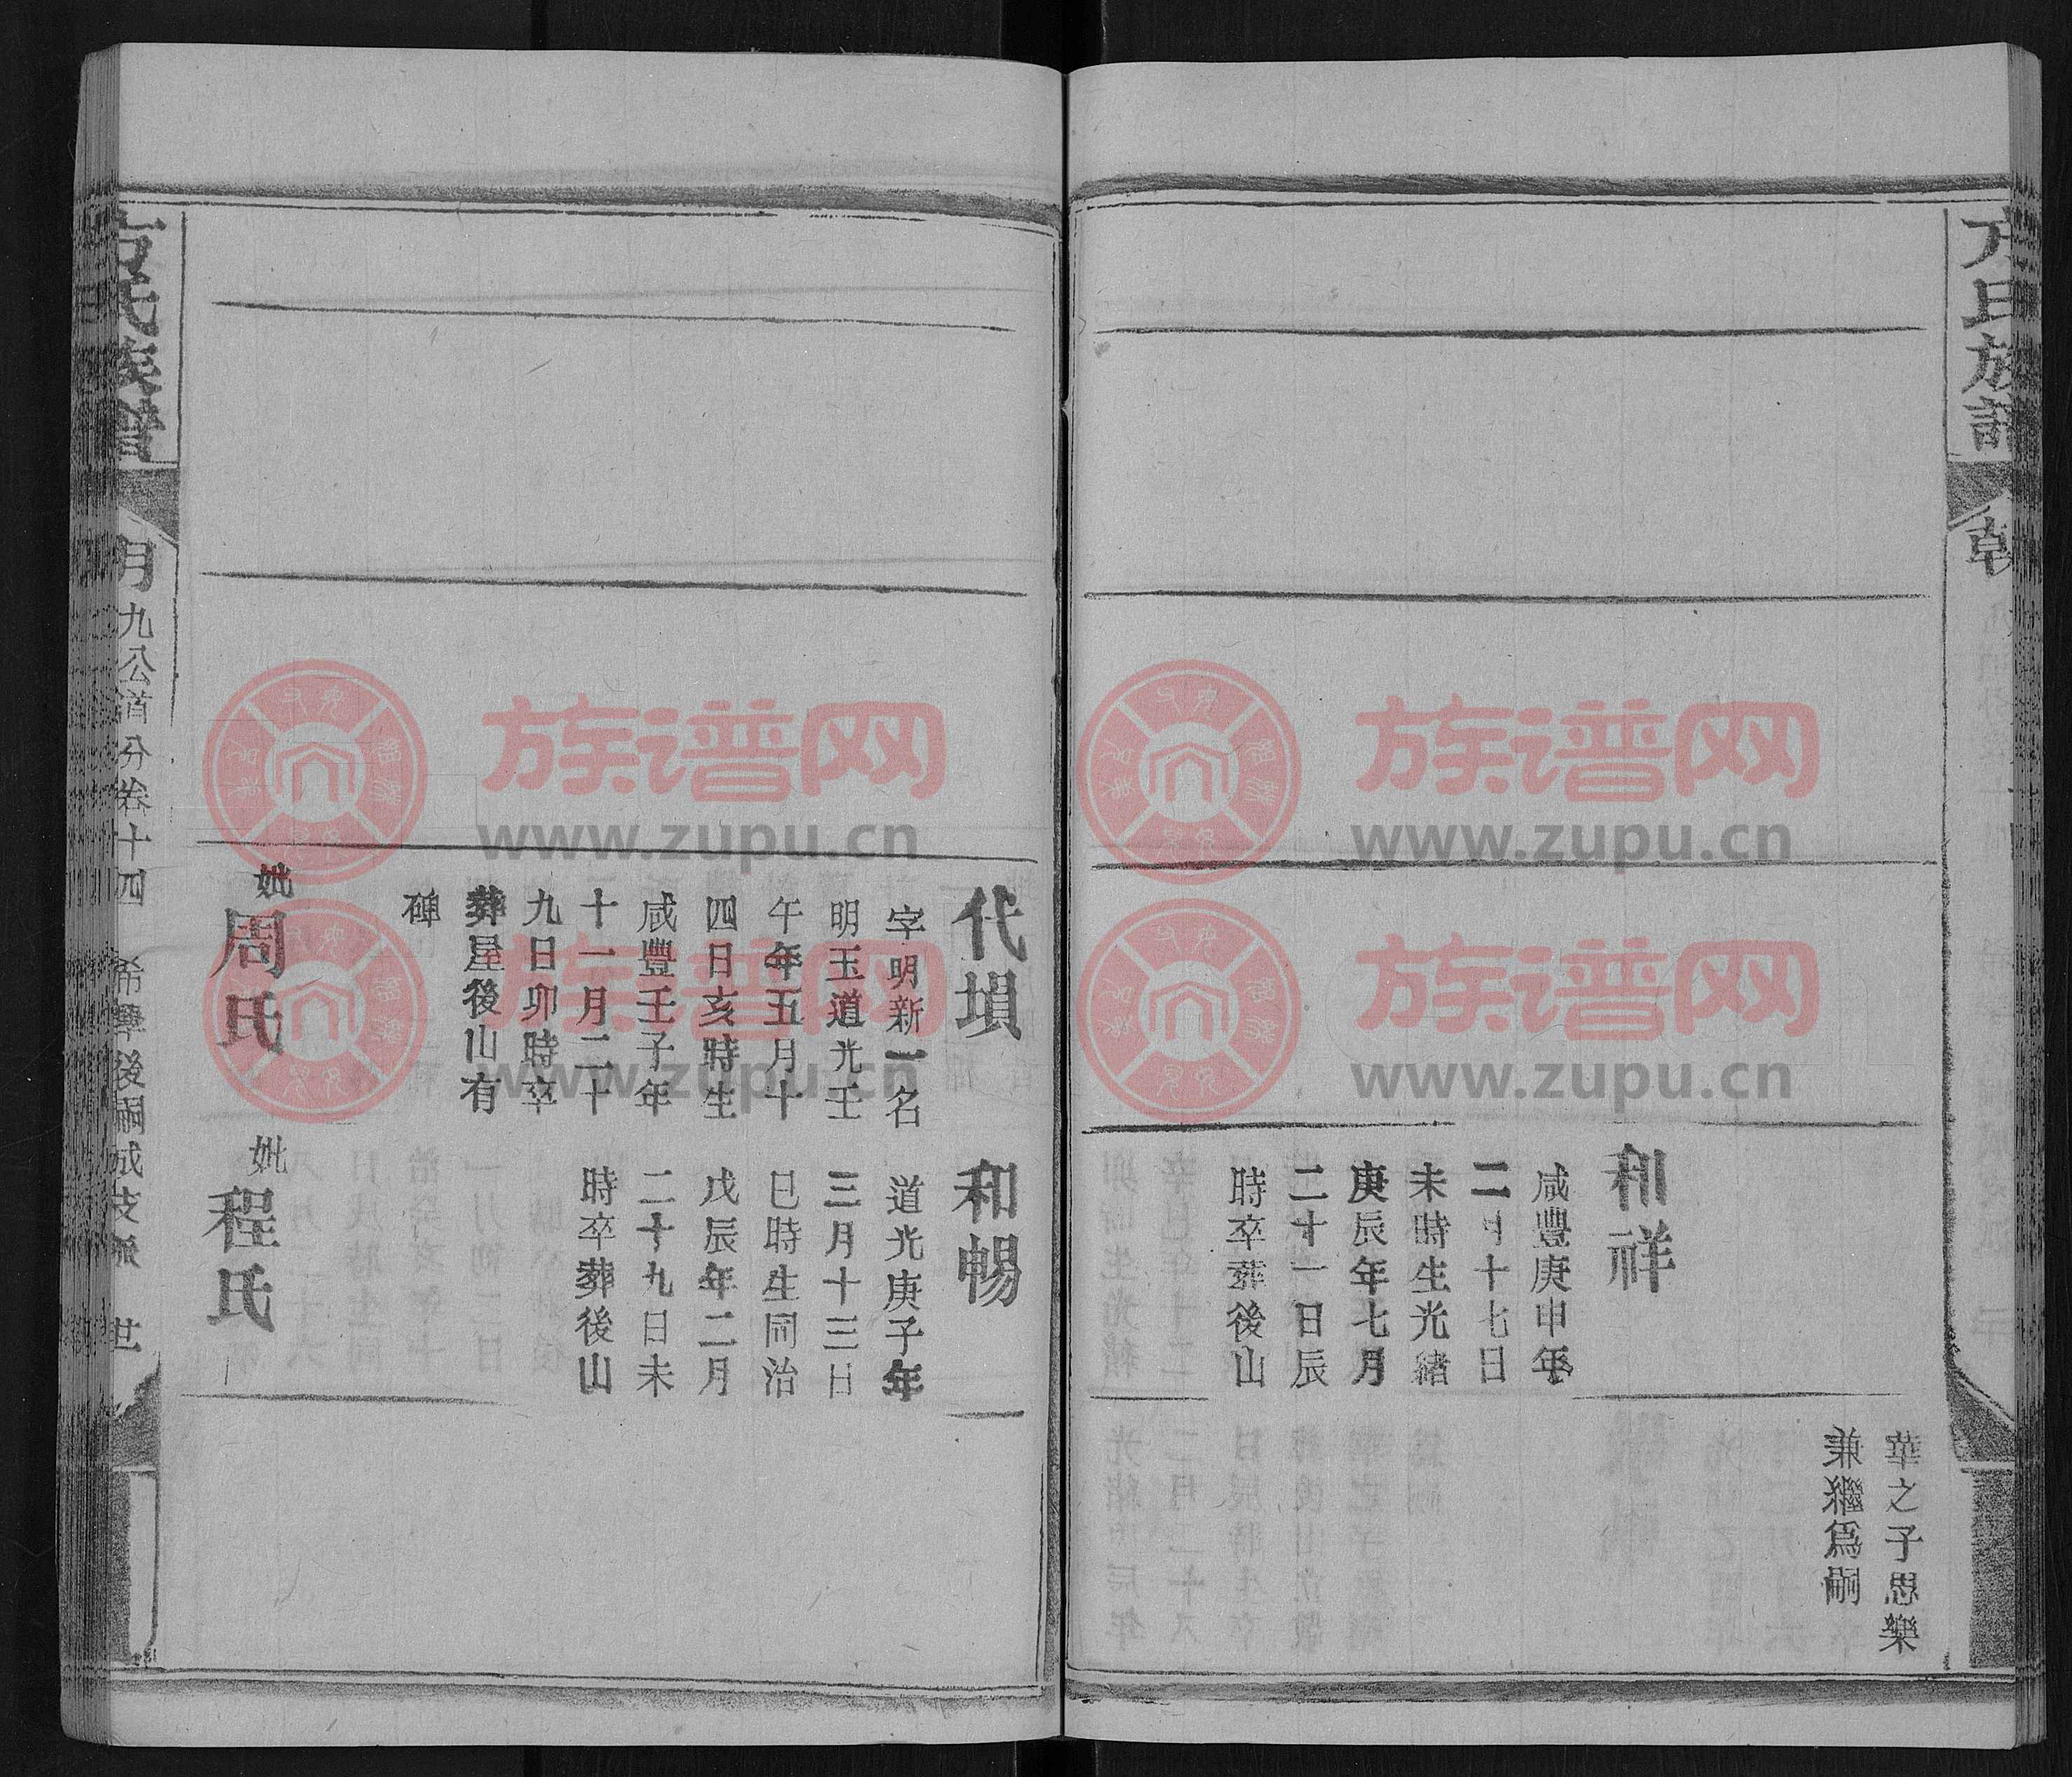 方氏族譜
乾
華之子思樂
兼繼為嗣
和祥
咸豐庚申年
二月十七日
未時生光緒
庚辰年七月
二十一日辰
時卒葬後山
代塤
字明新一名
明玉道光壬
午年五月十
四日亥時生
咸豐壬子年
十一月二十
九日卯時卒
葬屋後山有
碑
妣周氏
和暢
道光庚子年
三月十三日
巳時生同治
戊辰年二月
二十九日未
時卒葬後山
妣程氏
方氏族譜
月
九公消分卷十四
後嗣成支派
世
族谱网
www.zupu.cn
族谱网
www.zupu.cn
族谱网
www.zupu.cn
族谱网
www.zupu.cn